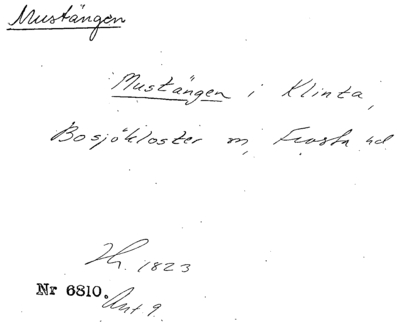 Mustängen
Mustängen i Klinta,
Bosjökloster sn, Frosta hd
Lh. 1823
Nr 6810.
Ant 9.